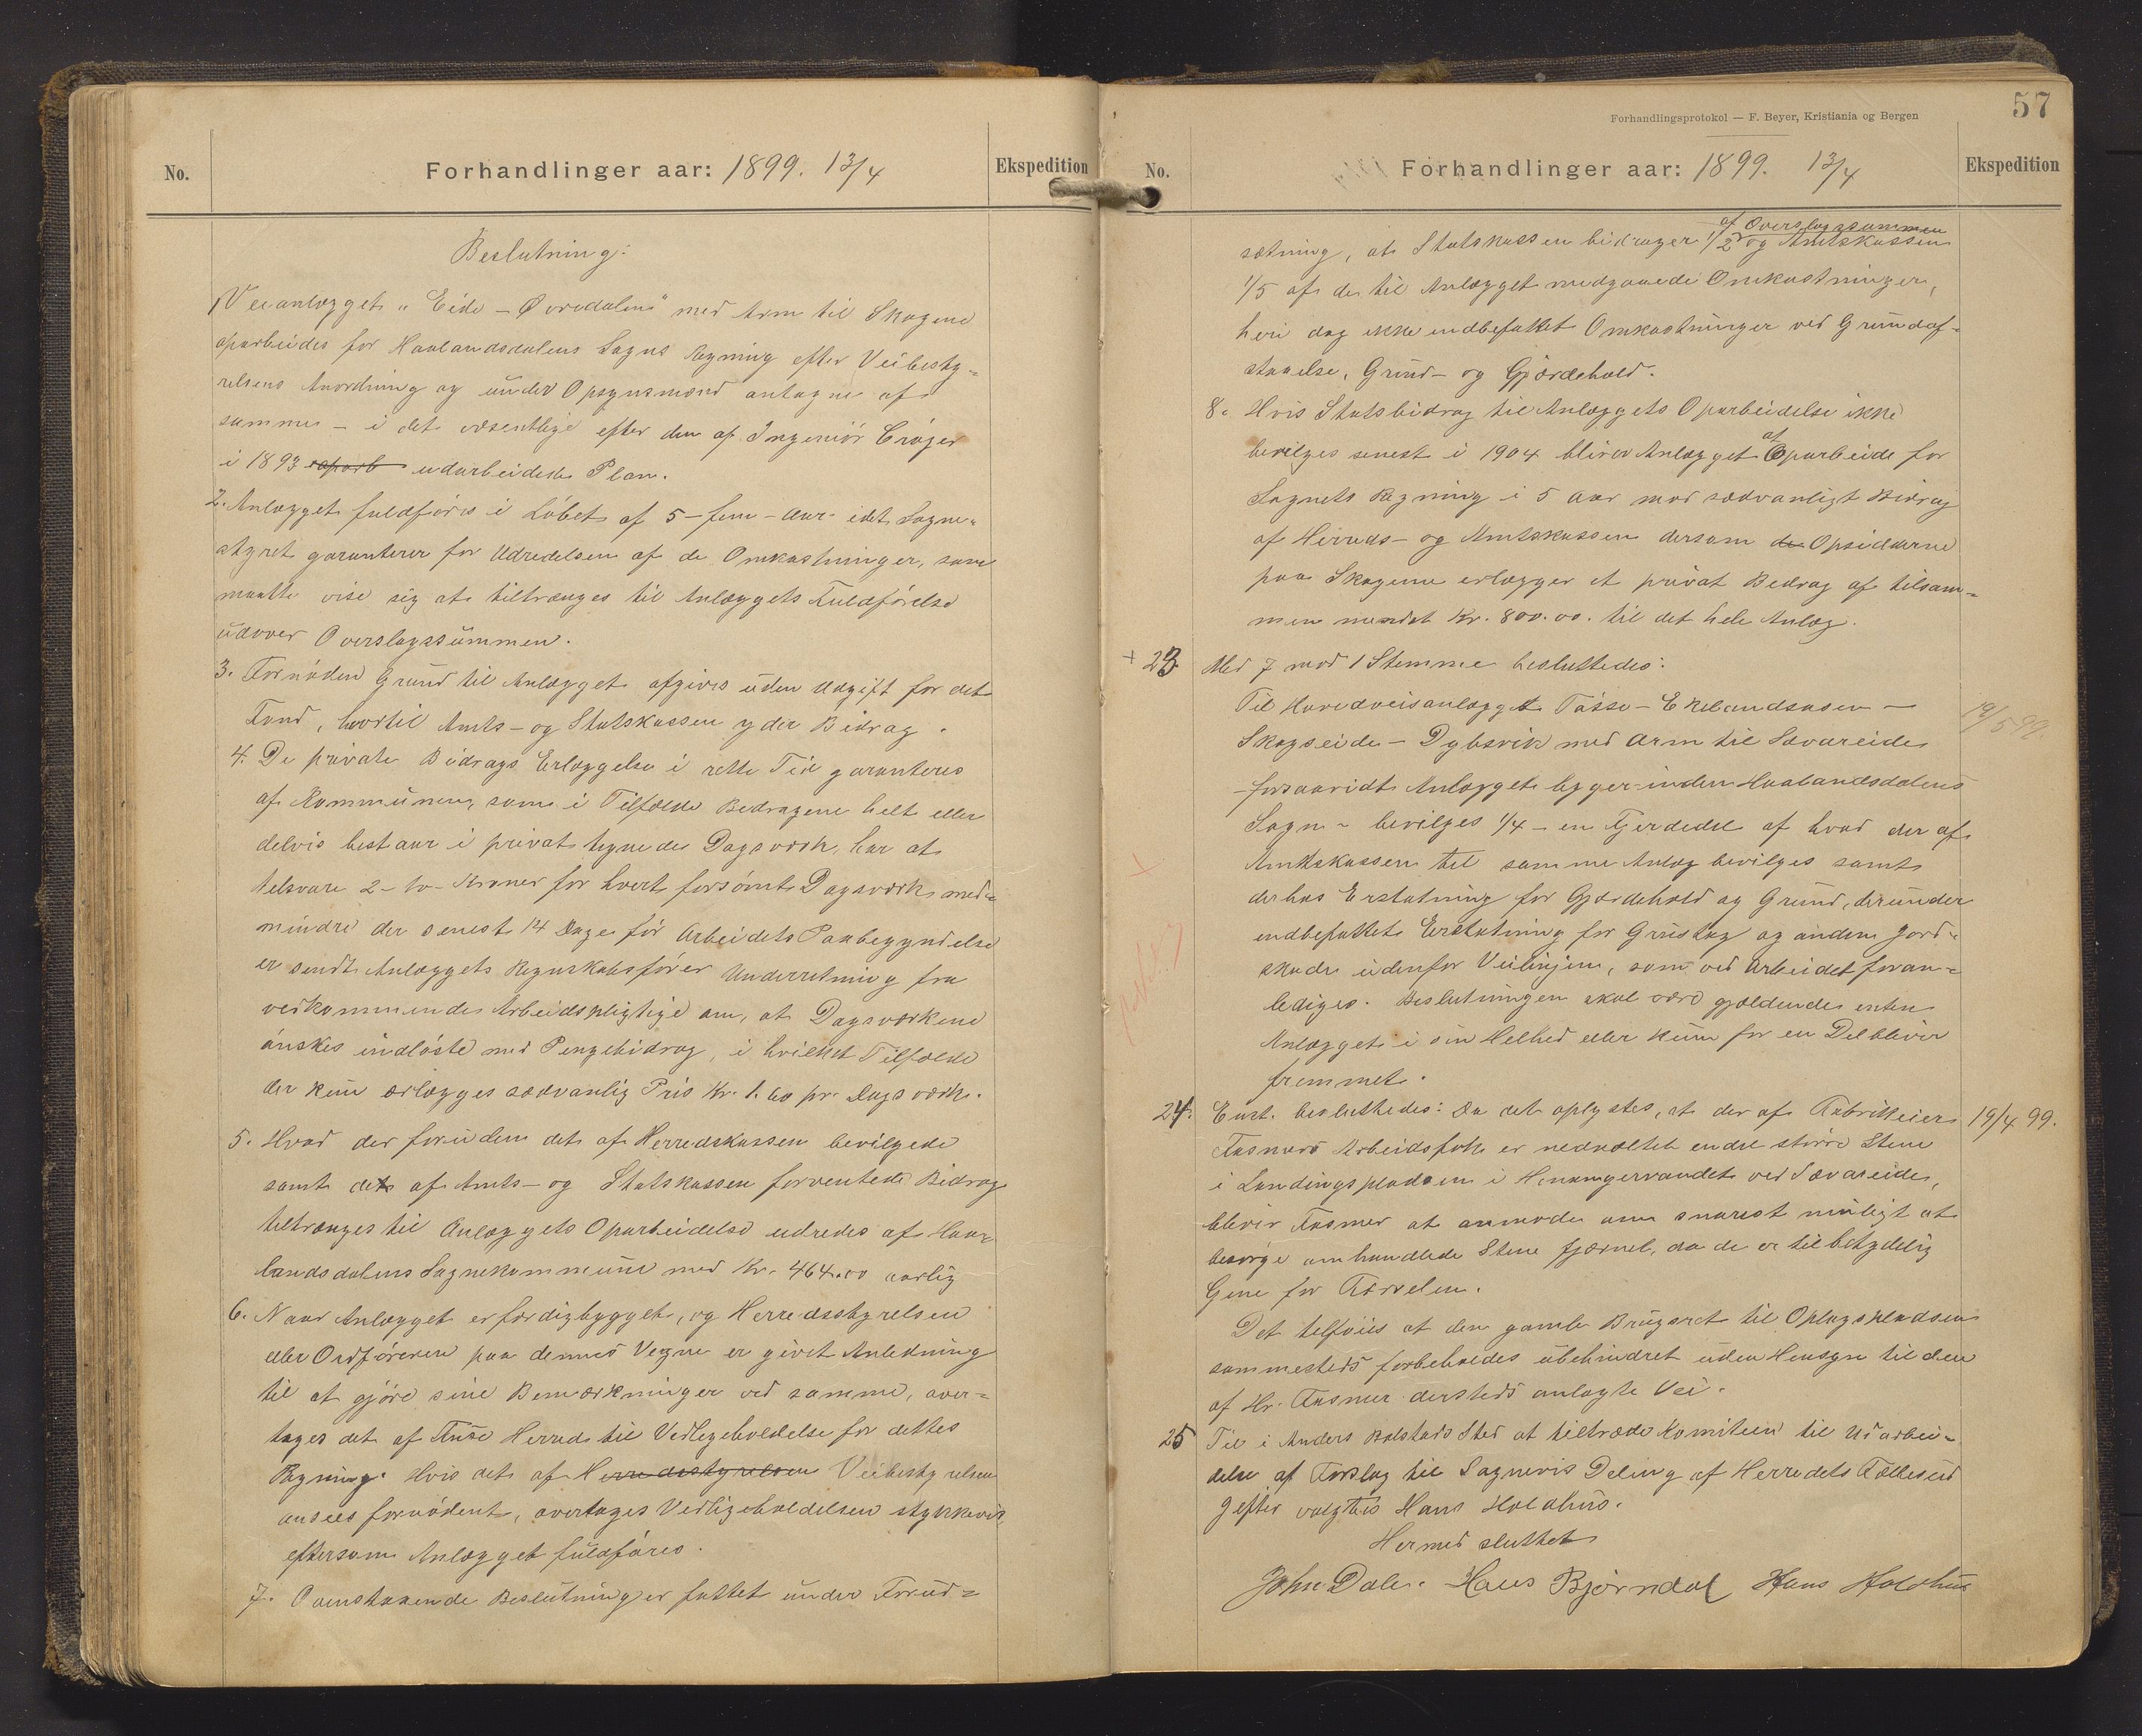 No.
Forhandlinger aar: 1899. 13/4
Ekspedition
Beslutning:
1, Veianlægget "Eide - Øvredalen" med Arm til Skogene
oparbeides for Haalandsdalens Sogns Regning efter Veibesty=
relsens Anordning og under Opsynsmænd antagne af
samme - i det væsentlige efter den af Ingeniør Crøger
i 1893 oparb udarbeidede Plan.
2. Anlægget fuldføres i Løbet af 5 - fem - Aar idet Sogne=
styret garanterer for Udredelsen af de Omkostninger, som
maatte vise sig at tiltrænges til Anlæggets Fuldførelse
udover Overslagssummen.
3. Fornøden Grund til Anlægget afgives uden Udgift for det
Fond, hvortil Amts- og Statskassen yder Bidrag.
4. De private Bidrags Erlæggelse i rette Tid garanteres
af Kommunen, som i Tilfælde Bidragene helt eller
delvis bestaar i privat tegnede Dagsværk, har at
tilsvare 2 - to - Kroner for hvert forsømt Dagsværk, med=
mindre der senest 14 Dage før Arbeidets Paabegyndelse
er sendt Anlæggets Regnskabsfører Underretning fra
vedkommende Arbeidspligtige om, at Dagsværkene
ønskes indløste med Pengebidrag, i hvilket Tilfælde
der kun erlægges sædvanlig Pris Kr. 1.60 pr. Dagsværk.
5. Hvad der foruden det af Herredskassen bevilgede
samt det af Amts- og Statskassen forventede Bidrag
tiltrænges til Anlæggets Oparbeidelse udredes af Haa=
landsdalens Sognekommune med Kr. 464.00 aarlig
6. Naar Anlægget er færdigbygget, og Herredsstyrelsen
eller Ordføreren paa dennes Vegne er givet Anledning
til at gjøre sine Bemærkninger ved samme, over=
tages det af Fuse Herred til Vedligeholdelse for dettes
Regning. Hvis det af Herredsstyrelsen Veibestyrelsen
ansees fornødent, overtages Vedligeholdelsen stykkevis,
eftersom Anlægget fuldføres.
7. Ovenstaaende Beslutning er fattet under Forud=
Forhandlingsprotokol — F. Beyer, Kristiania og Bergen
57
No.
Forhandlinger aar: 1899. 13/4
Ekspedition
af Overslagssummen
sætning, at Statskassen bidrager 1/2 og Amtskassen
1/5 af de til Anlægget medgaaede Omkostninger,
heri dog ikke indbefattet Omkostninger ved Grundaf=
staaelse, Grund- og Gjærdehold.
8. Hvis Statsbidrag til Anlæggets Oparbeidelse ikke
bevilges senest i 1904 bliver Anlægget at Oparbeide for
Sognets Regning i 5 aar mod sædvanligt Bidrag
af Herreds- og Amtskassen dersom de Opsidderne
paa Skogene erlægger et privat Bedrag af tilsam=
men mindst Kr. 800.00. til det hele Anlæg.
+ 23. Med 7 mod 1 Stemme besluttedes:
Til Hovedveisanlægget Tøsse - Ekelandsosen -
Skogseide - Dybsvik med Arm til Sævareide
- forsaavidt Anlægget ligger inden Haalandsdalens
Sogn - bevilges 1/4 - en Fjerdedel af hvad der af
Amtskassen til samme Anlæg bevilges samt
derhos Erstatning for Gjærdehold og Grund, derunder
indbefattet Erstatning for Grustag og anden Jord=
skade udenfor Veilinjen, som ved Arbeidet foran=
lediges. Beslutningen skal være gjældende enten
Anlægget i sin Helhed eller kun for en Del bliver
fremmet.
19/5 99.
24. Enst. besluttedes: Da det oplystes, at der af Fabrikeier
Fasmers Arbeidsfolk er nedvæltet endel større Stene
i Landingspladsen i Henangervandet ved Sævareide,
bliver Fasmer at anmode om snarest muligt at
besørge omhandlede Stene fjernet, da de er til betydelig
Gene for Færselen.
Det tilføies at den gamle Brugsret til Oplagspladsen
sammesteds forbeholdes ubehindret uden Hensyn til den
af Hr. Fasmer dersteds anlagte Vei.
19/4 99.
25 Til i Anders Bolstads Sted at tiltræde Komiteen til Udarbei=
delse af Forslag til Sognevis Deling af Herredets Fællesud
gifter valgtes Hans Holdhus.
Hermed sluttet
John Dale. Hans Bjørndal Hans Holdhus